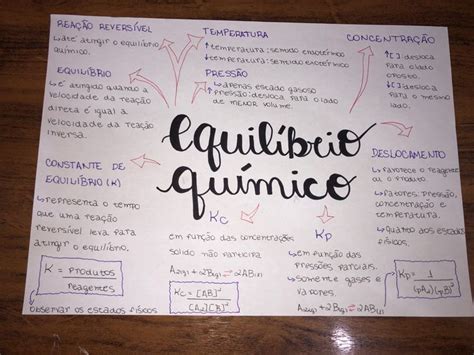 REAÇÃO REVERSÍVEL
↳ até atingir o equilíbrio
químico.
EQUILÍBRIO
↳ é atingido quando a
velocidade da reação
direta é igual a
velocidade da reação
inversa.
CONSTANTE DE
EQUILÍBRIO (K)
↳ representa o tempo
que uma reação
reversível leva para
atingir o equilíbrio.
K = produtos
reagentes
observar os estados físicos
TEMPERATURA
↑ temperatura: sentido endotérmico
↓ temperatura: sentido exotérmico
PRESSÃO
↳ apenas estado gasoso
↑ pressão: desloca para o lado
de MENOR volume.
CONCENTRAÇÃO
↑[ ]: desloca
para o lado
oposto.
↓[ ]: desloca
para o mesmo
lado.
equilíbrio
químico
DESLOCAMENTO
↳ favorece o reagente
ou o produto.
↳ fatores: pressão,
concentração e
temperatura.
↳ quatro aos estados
físicos.
Kc
em função das concentrações
sólido não participa
A₂(g) + 2B(g) ⇌ 2AB(s)
Kc = [AB]²
[A₂][B]²
Kp
↳ em função das
pressões parciais.
↳ somente gases e
vapores.
A₂(g) + 2B(g) ⇌ 2AB(s)
Kp = 1
(pA₂)(pB)²